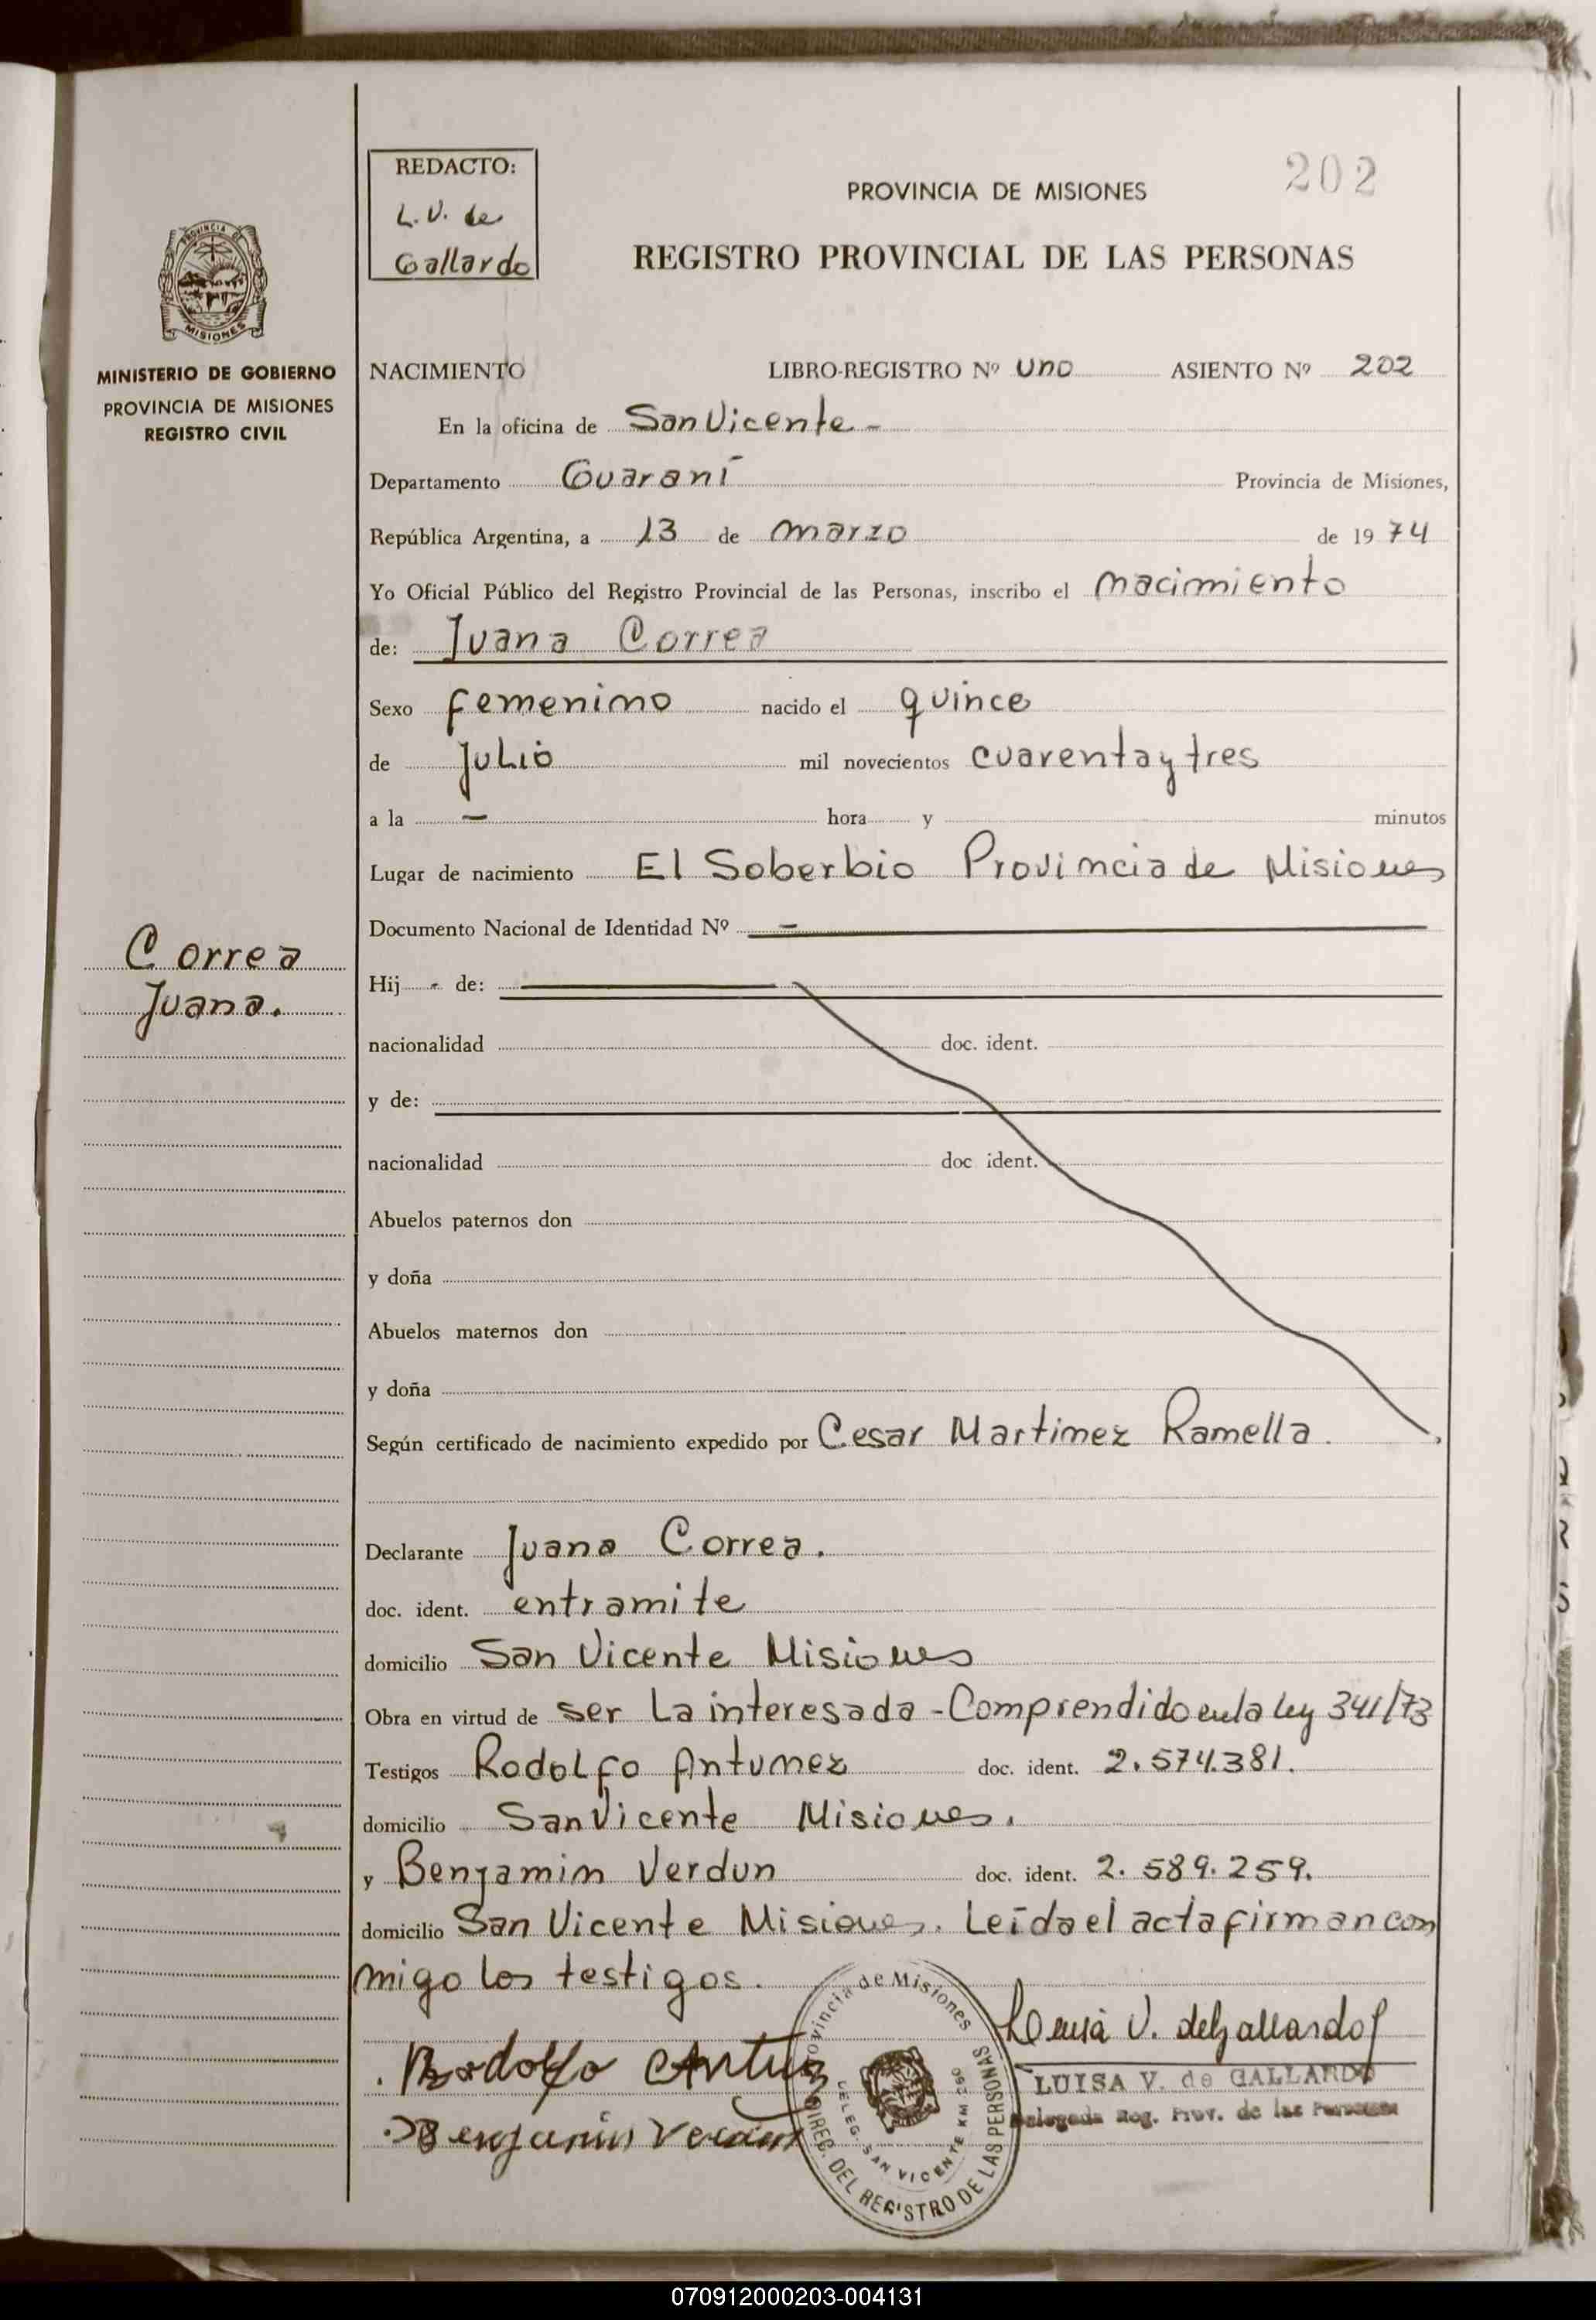 REDACTO:
L. V. de
Gallardo
202
PROVINCIA DE MISIONES
REGISTRO PROVINCIAL DE LAS PERSONAS
PROVINCIA DE
MISIONES
MINISTERIO DE GOBIERNO
PROVINCIA DE MISIONES
REGISTRO CIVIL
NACIMIENTO LIBRO-REGISTRO Nº uno ASIENTO Nº 202
En la oficina de San Vicente -
Departamento Guaraní Provincia de Misiones,
República Argentina, a 13 de marzo de 1974
Yo Oficial Público del Registro Provincial de las Personas, inscribo el nacimiento
de: Juana Correa
Sexo femenino nacido el quince
de Julio mil novecientos cuarenta y tres
a la - hora y minutos
Lugar de nacimiento El Soberbio Provincia de Misiones
Documento Nacional de Identidad Nº -
Correa
Juana.
Hij - de:
nacionalidad doc. ident.
y de:
nacionalidad doc ident.
Abuelos paternos don
y doña
Abuelos maternos don
y doña
Según certificado de nacimiento expedido por Cesar Martinez Ramella.
Declarante Juana Correa.
doc. ident. entramite
domicilio San Vicente Misiones
Obra en virtud de ser La interesada - Comprendido en la ley 341/73
Testigos Rodolfo Antunez doc. ident. 2.574.381.
domicilio San Vicente Misiones.
y Benjamin Verdun doc. ident. 2.589.259.
domicilio San Vicente Misiones. Leída el acta firman con
migo los testigos.
Luisa V. de Gallardo
LUISA V. de GALLARDO
Delegada Reg. Prov. de las Personas
Rodolfo Antunez
Benjamin Verdun
Provincia de Misiones
DIREC. DEL REGISTRO DE LAS PERSONAS
DELEG. SAN VICENTE KM 260
070912000203-004131